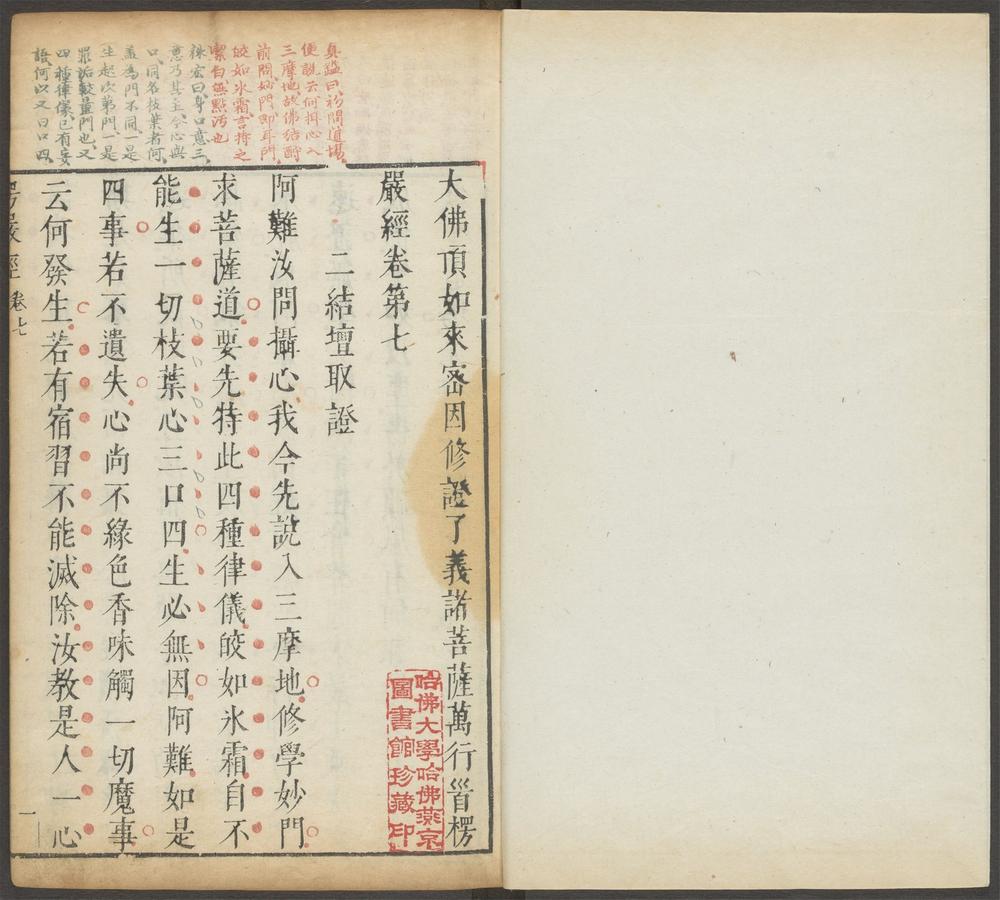 大佛頂如來密因修證了義諸菩薩萬行首楞
嚴經卷第七
二結壇取證
阿難汝問攝心我今先說入三摩地修學妙門
求菩薩道要先持此四種律儀皎如氷霜自不
能生一切枝葉心三口四生必無因阿難如是
四事若不遺失心尚不緣色香味觸一切魔事
云何發生若有宿習不能滅除汝教是人一心
真鑑曰初問道場
便說云何攝心入
三摩地故佛結酬
前問妙門即耳門
皎如氷霜言持之
潔白無點汚也
袾宏曰身口意三
意乃其主今心與
口同名枝葉者何
蓋爲門不同一是
生起次第門一是
罪垢較量門也又
四種律儀已有妄
語何以又曰口四
楞嚴經
卷七
一
哈佛大學哈佛燕京
圖書館珍藏印